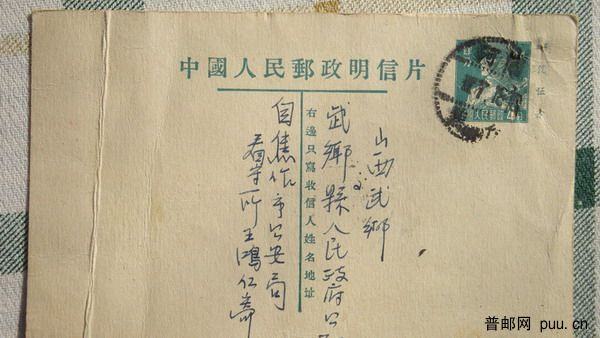 中國人民郵政明信片
山西武鄉
武鄉縣人民政府公
右邊只寫收信人姓名地址
自焦作市公安局
看守所王鴻仁
普邮网 puu.cn